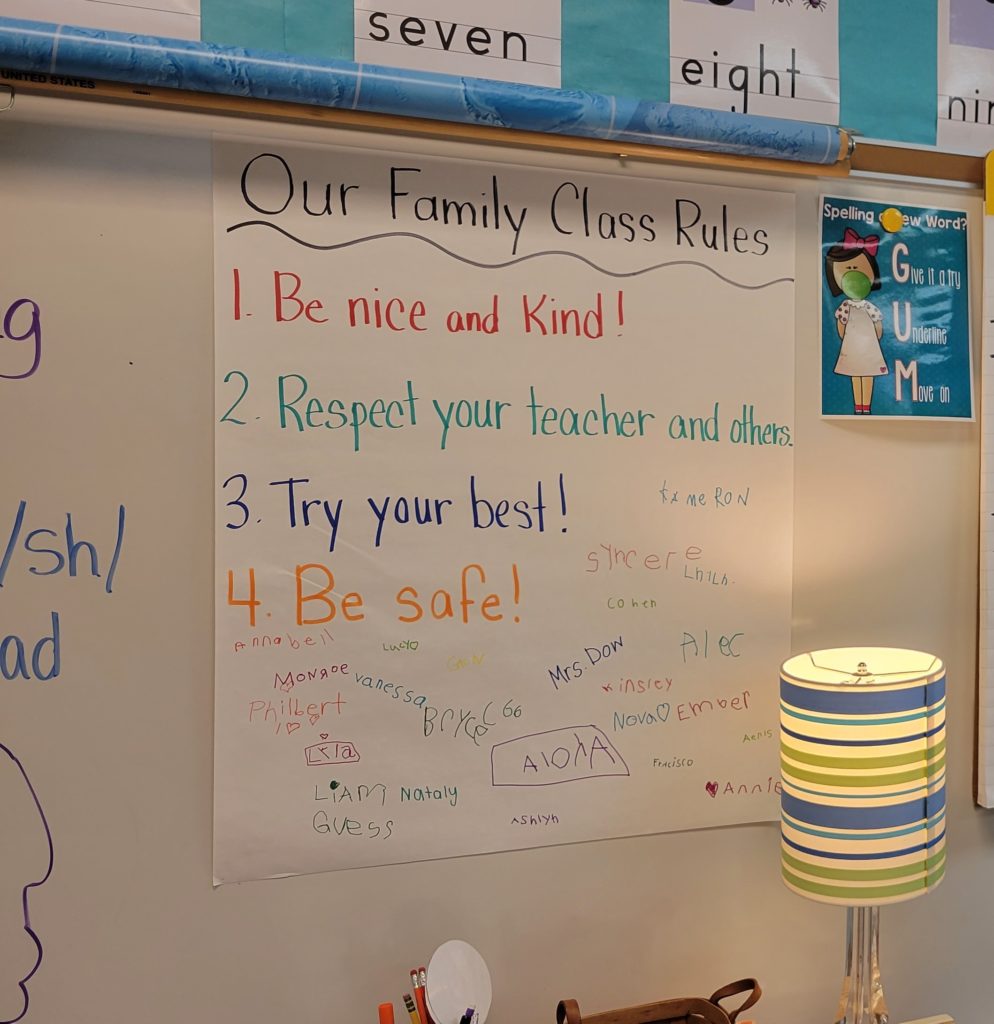 seven
eight
UNITED STATES
Our Family Class Rules
1. Be nice and Kind!
2. Respect your teacher and others.
3. Try your best!
4. Be safe!
sincere
Cohen
Annabell
Lucy
Mrs. Dow
Alec
Monroe
vanessa
Kinsley
Philbert
Nova
Ember
Lila
AlohA
LiAm
Nataly
Annie
Guess
Ashlyn
Spelling
ew Word?
Give it a try
Underline
Move on
/sh/
ad